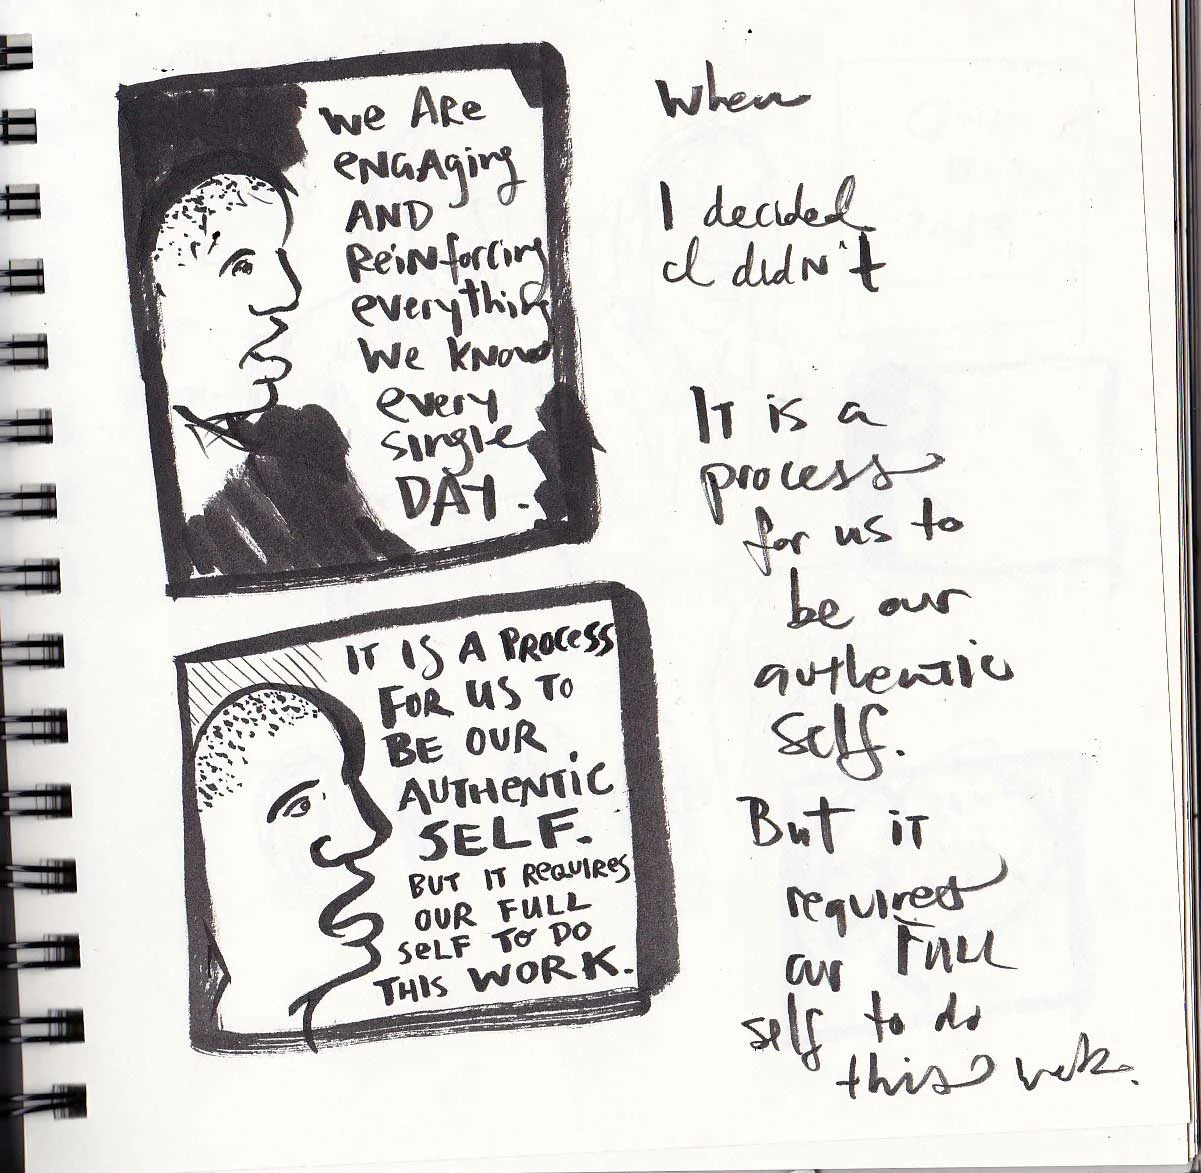 We ARe
eNGAging
AND
ReiNforcing
everything
We KNow
every
single
DAY.
IT IS A PROCeSS
FOR US TO
BE OUR
AUTHeNTiC
SELF.
BUT IT ReQUIRES
OUR FULL
SeLF TO DO
THIS WORK.
When
I decided
I didN't
IT is a
process
for us to
be our
authentic
self.
But iT
requires
our FULL
self to do
this work.